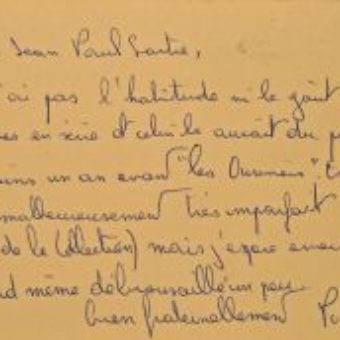 Jean Paul Sartre,
'ai pas l'habitude ni le goût
es en série et celui là aurait du p
oins un an avan "les Ouvriers".
malheureusement très imparfait
de la Collection) mais j'espère
d même débrousaillé un peu
bien fraternellement